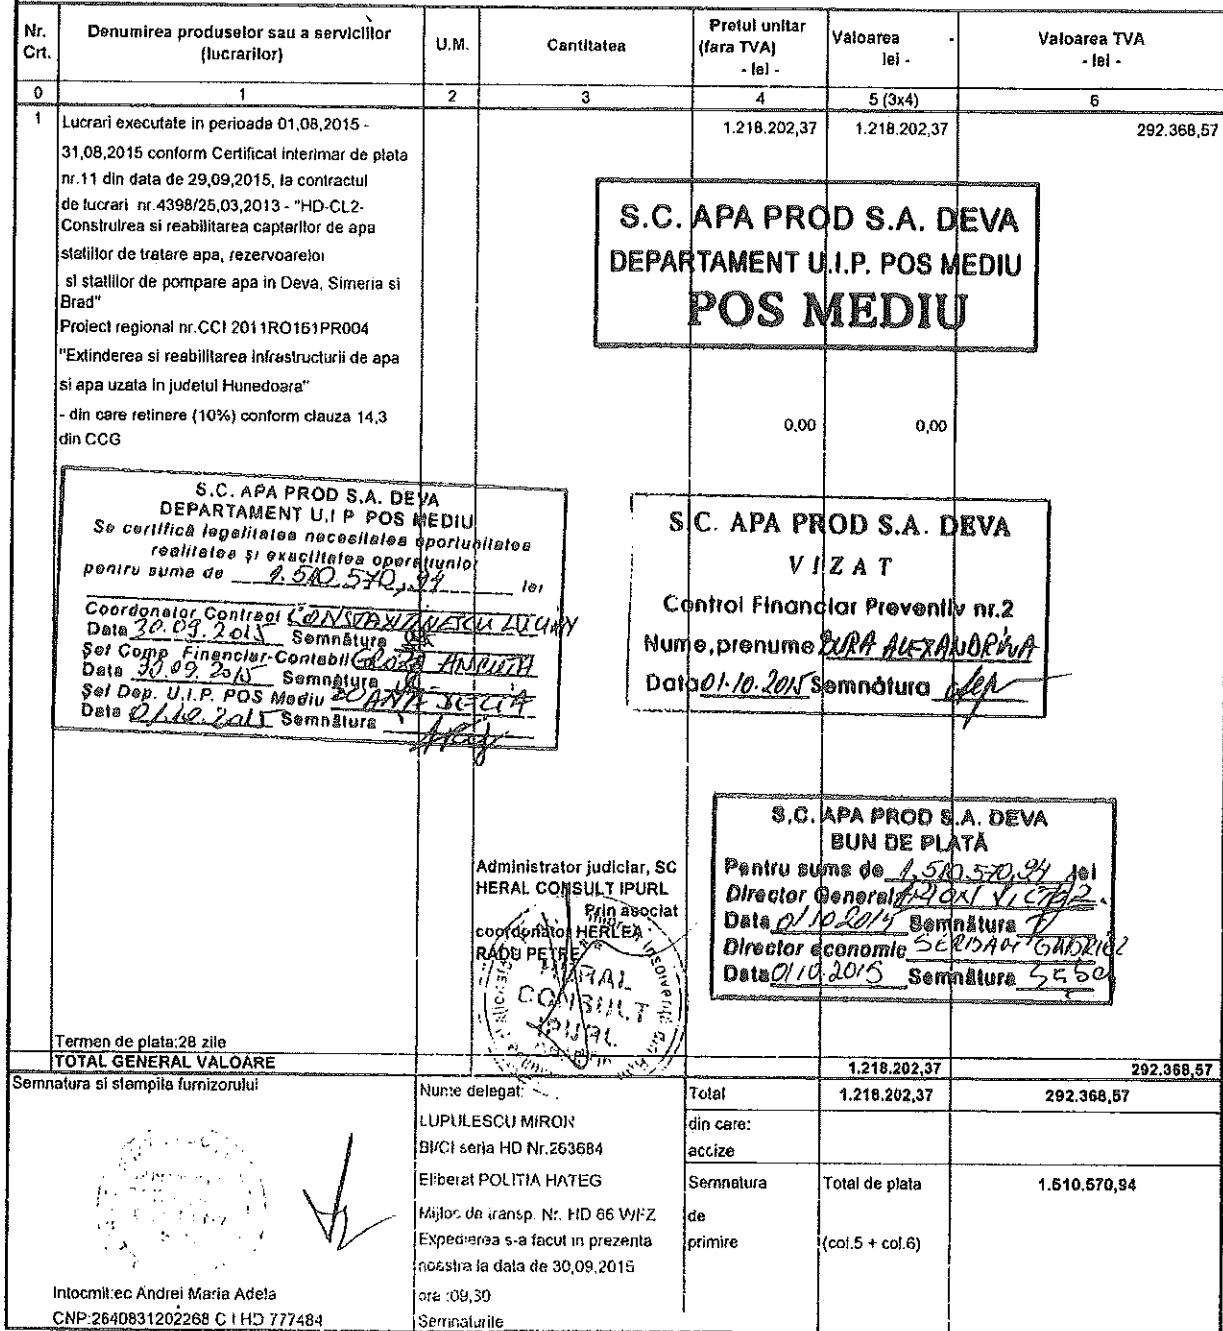 Nr. Crt.
Denumirea produselor sau a serviciilor (lucrarilor)
U.M.
Cantitatea
Pretul unitar (fara TVA) - lei -
Valoarea - lei -
Valoarea TVA - lei -
0 1 2 3 4 5 (3x4) 6
1 Lucrari executate in perioada 01,08,2015 - 1.218.202,37 1.218.202,37 292.368,57
31,08,2015 conform Certificat interimar de plata
nr.11 din data de 29,09,2015, la contractul
de lucrari nr.4398/25,03,2013 - "HD-CL2-
Construirea si reabilitarea captarilor de apa
statiilor de tratare apa, rezervoarelor
si statiilor de pompare apa in Deva, Simeria si
Brad"
Proiect regional nr.CCI 2011RO161PR004
"Extinderea si reabilitarea infrastructurii de apa
si apa uzata in judetul Hunedoara"
- din care retinere (10%) conform clauza 14,3
din CCG
0,00 0,00
S.C. APA PROD S.A. DEVA
DEPARTAMENT U.I.P. POS MEDIU
POS MEDIU
S.C. APA PROD S.A. DEVA
DEPARTAMENT U.I.P POS MEDIU
Se certifică legalitatea necesitatea oportunitatea
realitatea și exactitatea operațiunilor
pentru suma de 1.510.570,94 lei
Coordonator Contract CONSTANTINESCU LUCIAN
Data 30.09.2015 Semnătura
Șef Comp. Financiar-Contabil GROZA ANCUTA
Data 30.09.2015 Semnătura
Șef Dep. U.I.P. POS Mediu
Data 01.10.2015 Semnătura
S.C. APA PROD S.A. DEVA
VIZAT
Control Financiar Preventiv nr.2
Nume,prenume BURA ALEXANDRINA
Data 01.10.2015 Semnătura
S.C. APA PROD S.A. DEVA
BUN DE PLATĂ
Pentru suma de 1.510.570,94 lei
Director General ARION VICTOR
Data 01 10 2015 Semnătura
Director economic SERBAN GABRIEL
Data 01 10.2015 Semnătura
Administrator judiciar, SC
HERAL CONSULT IPURL
Prin asociat
coordonator HERLEA
RADU PETRE
HERAL
CONSULT
IPURL
Termen de plata:28 zile
TOTAL GENERAL VALOARE 1.218.202,37 292.368,57
Semnatura si stampila furnizorului
Nume delegat:
LUPULESCU MIRON
BI/CI seria HD Nr.263684
Eliberat POLITIA HATEG
Mijloc de transp. Nr. HD 66 WFZ
Expedierea s-a facut in prezenta
noastra la data de 30,09,2015
ora :09,30
Semnaturile
Total 1.218.202,37 292.368,57
din care:
accize
Semnatura de primire
Total de plata 1.510.570,94
(col.5 + col.6)
Intocmit:ec Andrei Maria Adela
CNP:2640831202268 C I HD 777484